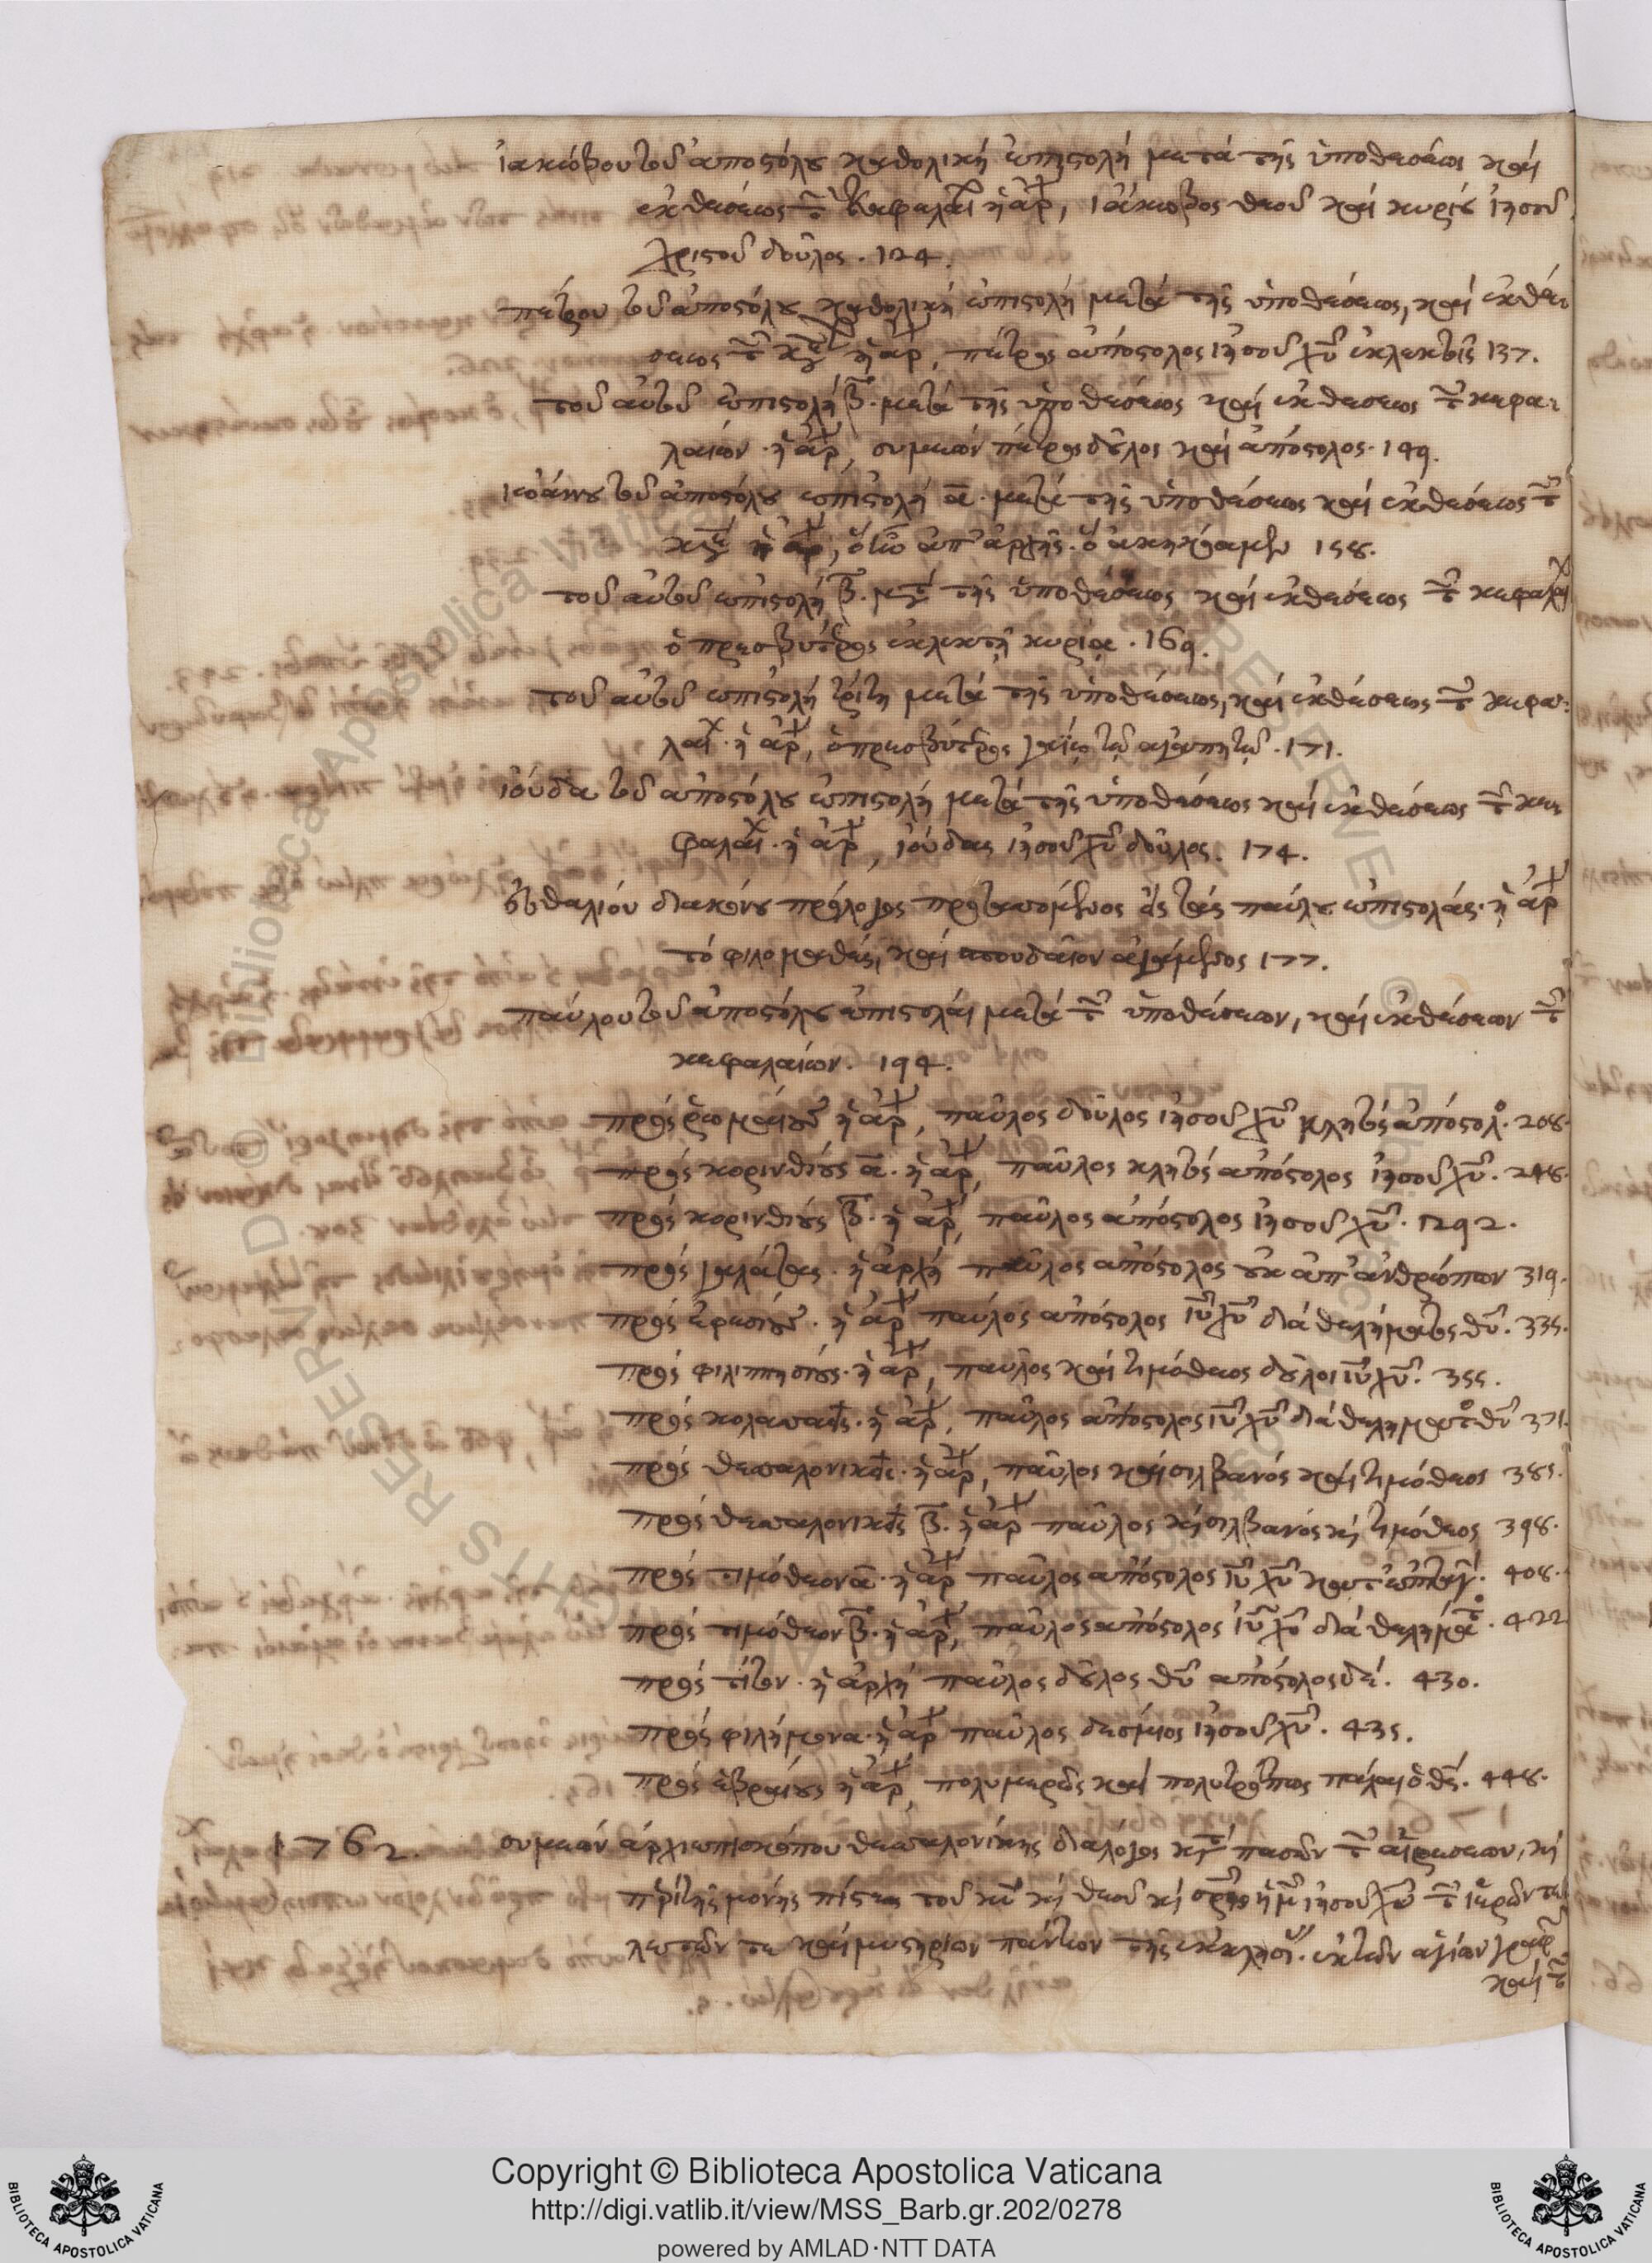 ἰακώβου τοῦ ἀποστόλου καθολικὴ ἐπιστολὴ μετὰ τῆς ὑποθέσεως καὶ
ἐκθέσεως τ κεφαλαί ἡ ἀρχ, ἰάκωβος θεοῦ καὶ κυρίου ἰησοῦ
χριστοῦ δοῦλος. 124.
πέτρου τοῦ ἀποστόλου καθολικὴ ἐπιστολὴ μετὰ τῆς ὑποθέσεως, καὶ ἐκθέ
σεως τ κε ἡ ἀρχ, πέτρος ἀπόστολος ἰησοῦ χῦ ἐκλεκτοῖς 137.
τοῦ αὐτοῦ ἐπιστολὴ β. μετὰ τῆς ὑποθέσεως καὶ ἐκθέσεως τ κεφα
λαίων. ἡ ἀρχ, συμεὼν πέτρος δοῦλος καὶ ἀπόστολος. 149.
ἰωάννου τοῦ ἀποστόλου ἐπιστολὴ α. μετὰ τῆς ὑποθέσεως καὶ ἐκθέσεως τ
κε ἡ ἀρχ, ὃ ἦν ἀπ' ἀρχῆς. ὃ ἀκηκόαμεν 158.
τοῦ αὐτοῦ ἐπιστολὴ β. μετ τῆς ὑποθέσεως καὶ ἐκθέσεως τ κεφαλαί
ὁ πρεσβύτερος ἐκλεκτῇ κυρίᾳ. 169.
τοῦ αὐτοῦ ἐπιστολὴ τρίτη μετὰ τῆς ὑποθέσεως, καὶ ἐκθέσεως τ κεφα
λαί. ἡ ἀρχ, ὁ πρεσβύτερος γαΐῳ τῷ ἀγαπητῷ. 171.
ἰούδα τοῦ ἀποστόλου ἐπιστολὴ μετὰ τῆς ὑποθέσεως καὶ ἐκθέσεως τ κε
φαλαί. ἡ ἀρχ, ἰούδας ἰησοῦ χῦ δοῦλος. 174.
εὐθαλίου διακόνου πρόλογος προτασσόμενος εἰς τὰς παύλου ἐπιστολάς. ἡ ἀρχ
τὸ φιλομαθές, καὶ σπουδαῖον ἀγάμενος 177.
παύλου τοῦ ἀποστόλου ἐπιστολαὶ μετὰ τ ὑποθέσεων, καὶ ἐκθέσεων τ
κεφαλαίων. 194.
πρὸς ῥωμαίους ἡ ἀρχ, παῦλος δοῦλος ἰησοῦ χῦ κλητὸς ἀπόστολ. 208.
πρὸς κορινθίους α. ἡ ἀρχ, παῦλος κλητὸς ἀπόστολος ἰησοῦ χῦ. 248.
πρὸς κορινθίους β. ἡ ἀρχ, παῦλος ἀπόστολος ἰησοῦ χῦ. 292.
πρὸς γαλάτας. ἡ ἀρχὴ παῦλος ἀπόστολος οὐκ ἀπ' ἀνθρώπων 319.
πρὸς ἐφεσίους. ἡ ἀρχ παῦλος ἀπόστολος ἰῦ χῦ διὰ θελήματος θῦ. 335.
πρὸς φιλιππησίους. ἡ ἀρχ, παῦλος καὶ τιμόθεος δοῦλοι ἰῦ χῦ. 355.
πρὸς κολασσαεῖς. ἡ ἀρχ, παῦλος ἀπόστολος ἰῦ χῦ διὰ θελήματ θῦ 371.
πρὸς θεσσαλονικεῖς. ἡ ἀρχ, παῦλος καὶ σιλβανὸς καὶ τιμόθεος 385.
πρὸς θεσσαλονικεῖς β. ἡ ἀρχ παῦλος κὴ σιλβανὸς κὴ τιμόθεος 398.
πρὸς τιμόθεον α. ἡ ἀρχ παῦλος ἀπόστολος ἰῦ χῦ κατ' ἐπιταγ. 408.
πρὸς τιμόθεον β. ἡ ἀρχ, παῦλος ἀπόστολος ἰῦ χῦ διὰ θελήματ. 422
πρὸς τίτον. ἡ ἀρχὴ παῦλος δοῦλος θῦ ἀπόστολος δέ. 430.
πρὸς φιλήμονα. ἡ ἀρχ παῦλος δέσμιος ἰησοῦ χῦ. 435.
πρὸς ἑβραίους ἡ ἀρχ, πολυμερῶς καὶ πολυτρόπως πάλαι ὁ θς. 448.
1762. συμεὼν ἀρχιεπισκόπου θεσσαλονίκης διάλογος κατ πασῶν τ αἱρέσεων, κὴ
περὶ τῆς μόνης πίστεως τοῦ κῦ κὴ θεοῦ κὴ σρς ἡμ ἰησοῦ χῦ τ ἱερῶν τε
λετῶν τε καὶ μυστηρίων πάντων τῆς ἐκκλησί. ἐκ τῶν ἁγίων γραφ
καὶ τ
Copyright © Biblioteca Apostolica Vaticana
http://digi.vatlib.it/view/MSS_Barb.gr.202/0278
powered by AMLAD·NTT DATA
BIBLIOTECA APOSTOLICA VATICANA
BIBLIOTECA APOSTOLICA VATICANA